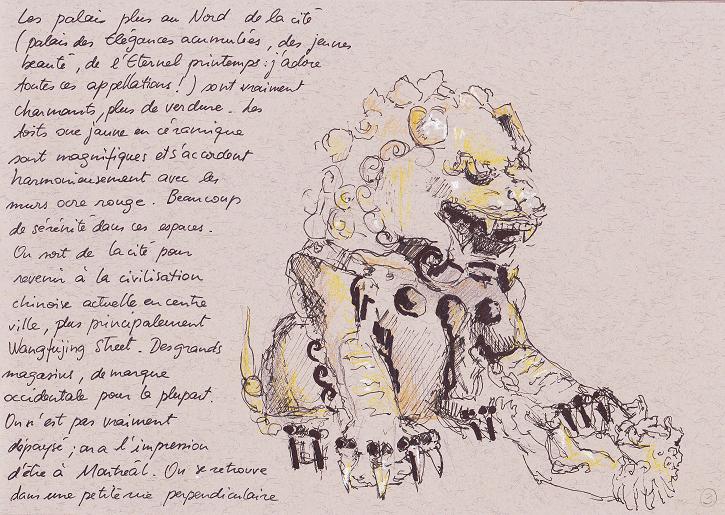 Les palais plus au Nord de la cité
(palais des Elégances acumulées, des jeunes
beauté, de l'Eternel printemps : j'adore
toutes ces appellations !) sont vraiment
charmants, plus de verdure. Les
toits ocre jaune en céramique
sont magnifiques et s'accordent
harmonieusement avec les
murs ocre rouge. Beaucoup
de sérénité dans ces espaces.
On sort de la cité pour
revenir à la civilisation
chinoise actuelle en centre
ville, plus principalement
Wangfujing Street. Des grands
magasins, de marque
occidentale pour la plupart.
On n'est pas vraiment
dépaysé ; on a l'impression
d'être à Montréal. On se retrouve
dans une petite rue perpendiculaire
3